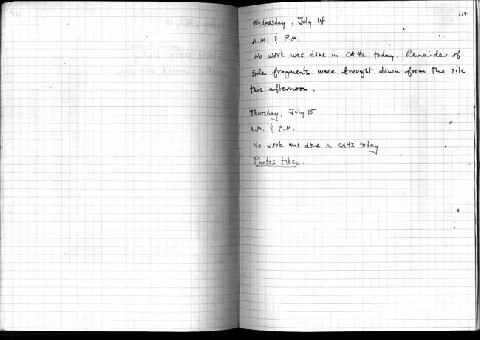 117
Wednesday, July 14
A.M. & P.M.
No work was done in CA42 today. Remainder of
fragments were brought down from the site
this afternoon.
Thursday, July 15
A.M. & P.M.
No work was done in CA42 today
Photos taken.